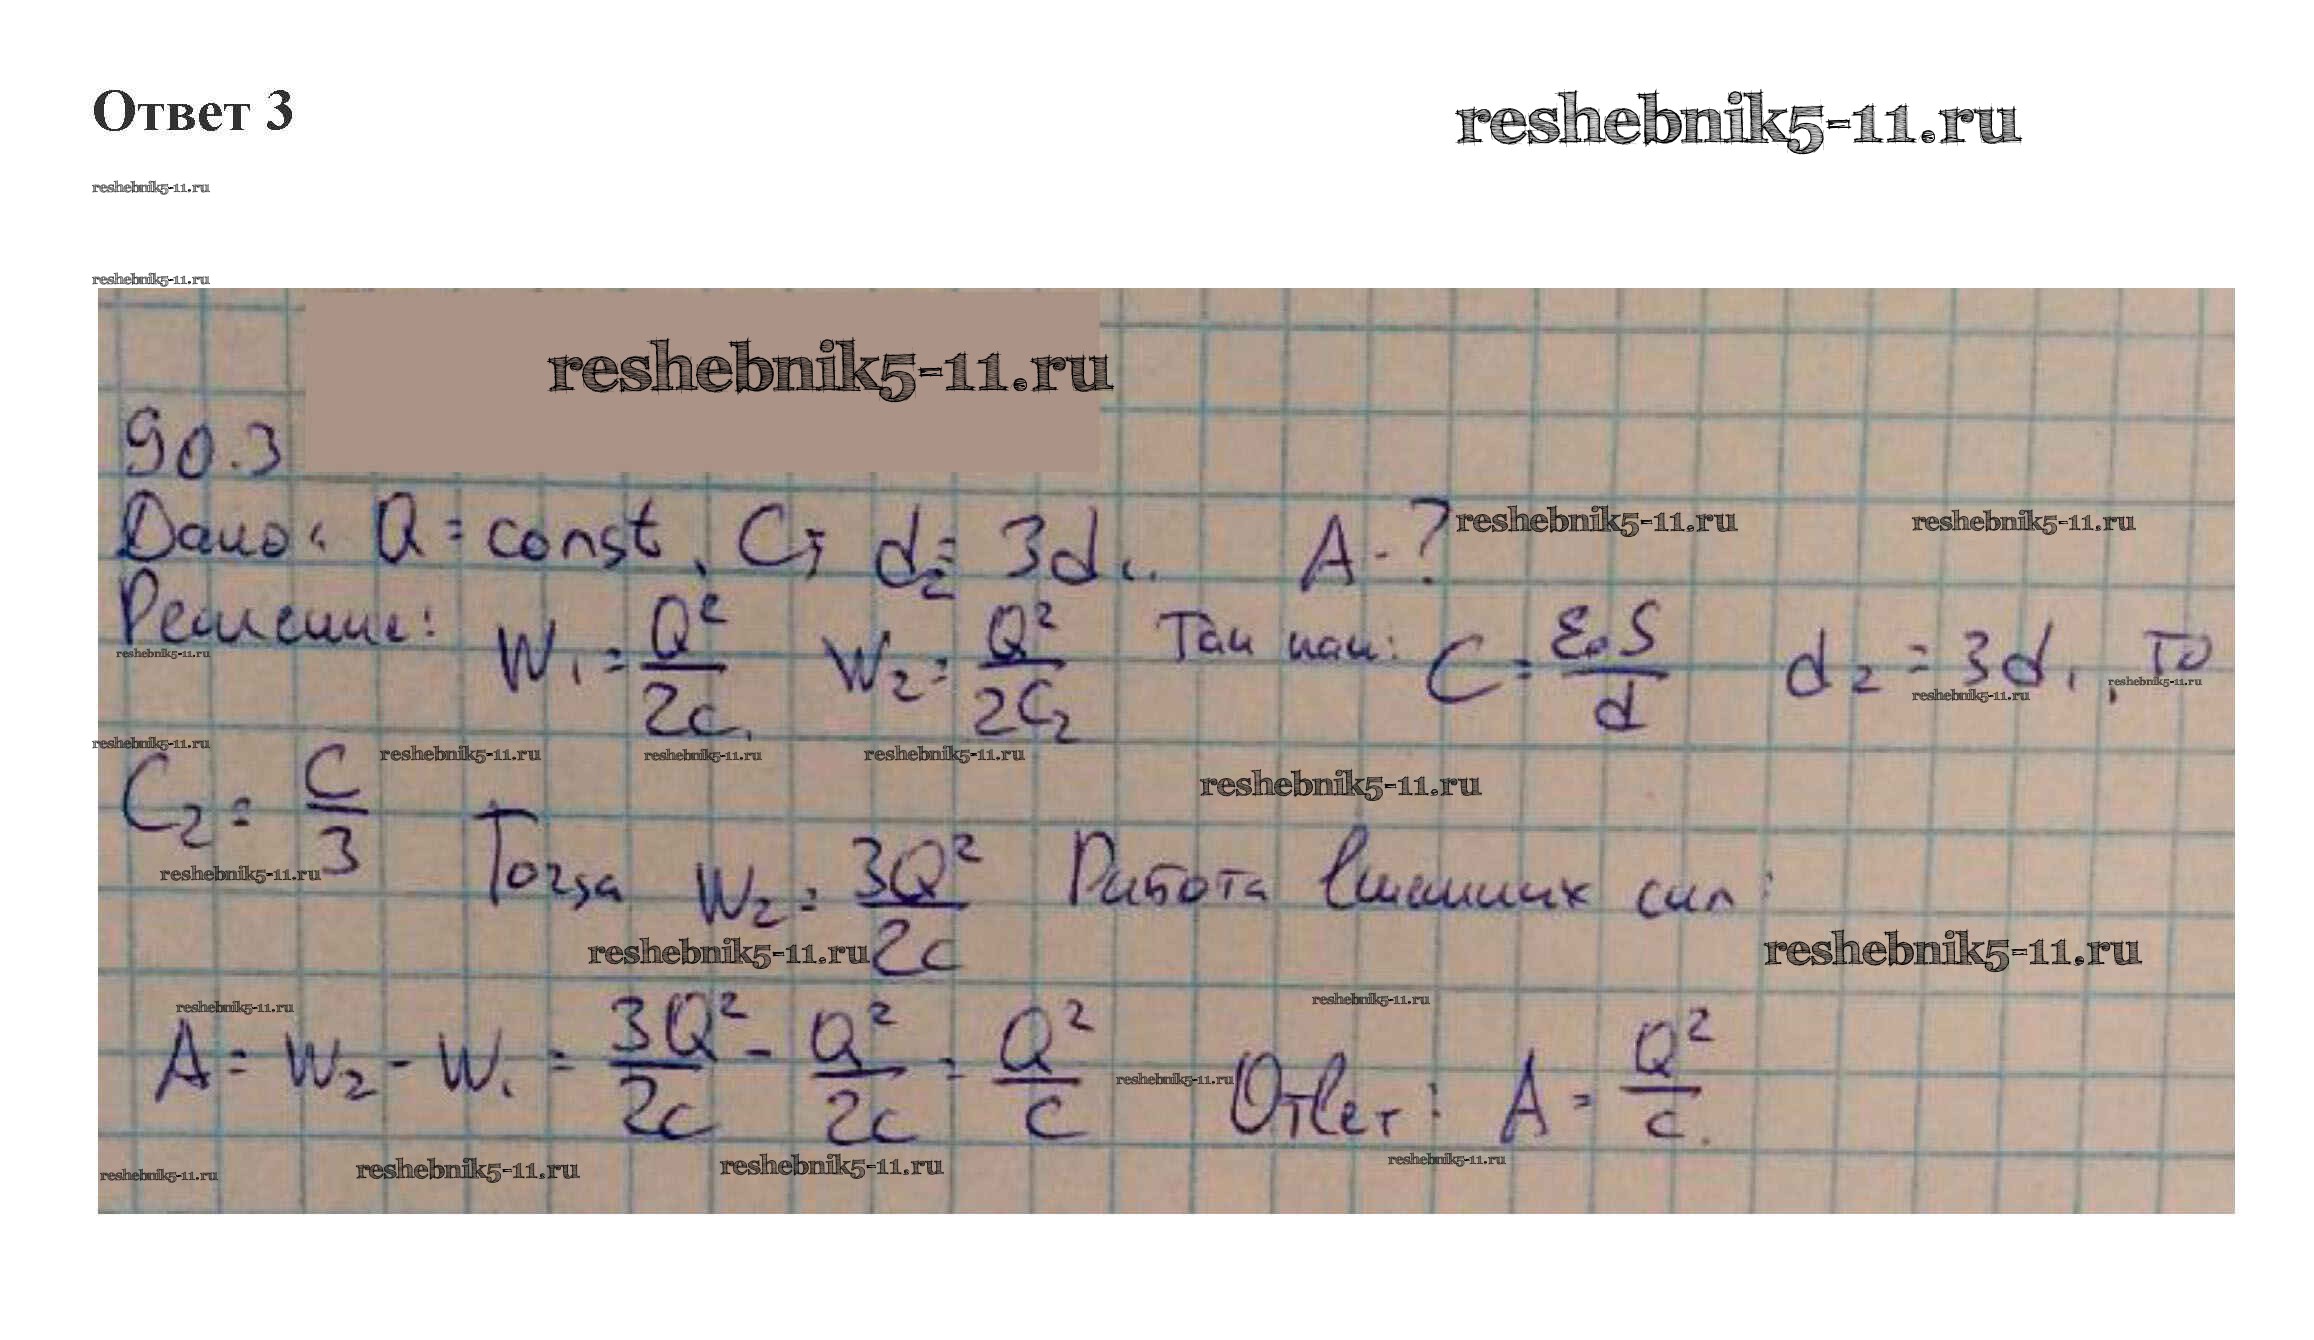 Ответ 3
reshebnik5-11.ru
reshebnik5-11.ru
reshebnik5-11.ru
reshebnik5-11.ru
90.3
Дано: Q = const, C; d₂ = 3d₁. A - ?
reshebnik5-11.ru reshebnik5-11.ru
Решение: W₁ = Q²/2C. W₂ = Q²/2C₂ Так как: C = ε₀S/d d₂ = 3d₁, то
reshebnik5-11.ru reshebnik5-11.ru reshebnik5-11.ru
reshebnik5-11.ru reshebnik5-11.ru reshebnik5-11.ru reshebnik5-11.ru reshebnik5-11.ru
C₂ = C/3 Тогда W₂ = 3Q²/2C Работа внешних сил:
reshebnik5-11.ru reshebnik5-11.ru reshebnik5-11.ru
reshebnik5-11.ru reshebnik5-11.ru
A = W₂ - W₁ = 3Q²/2C - Q²/2C = Q²/C Ответ: A = Q²/C.
reshebnik5-11.ru
reshebnik5-11.ru reshebnik5-11.ru reshebnik5-11.ru reshebnik5-11.ru